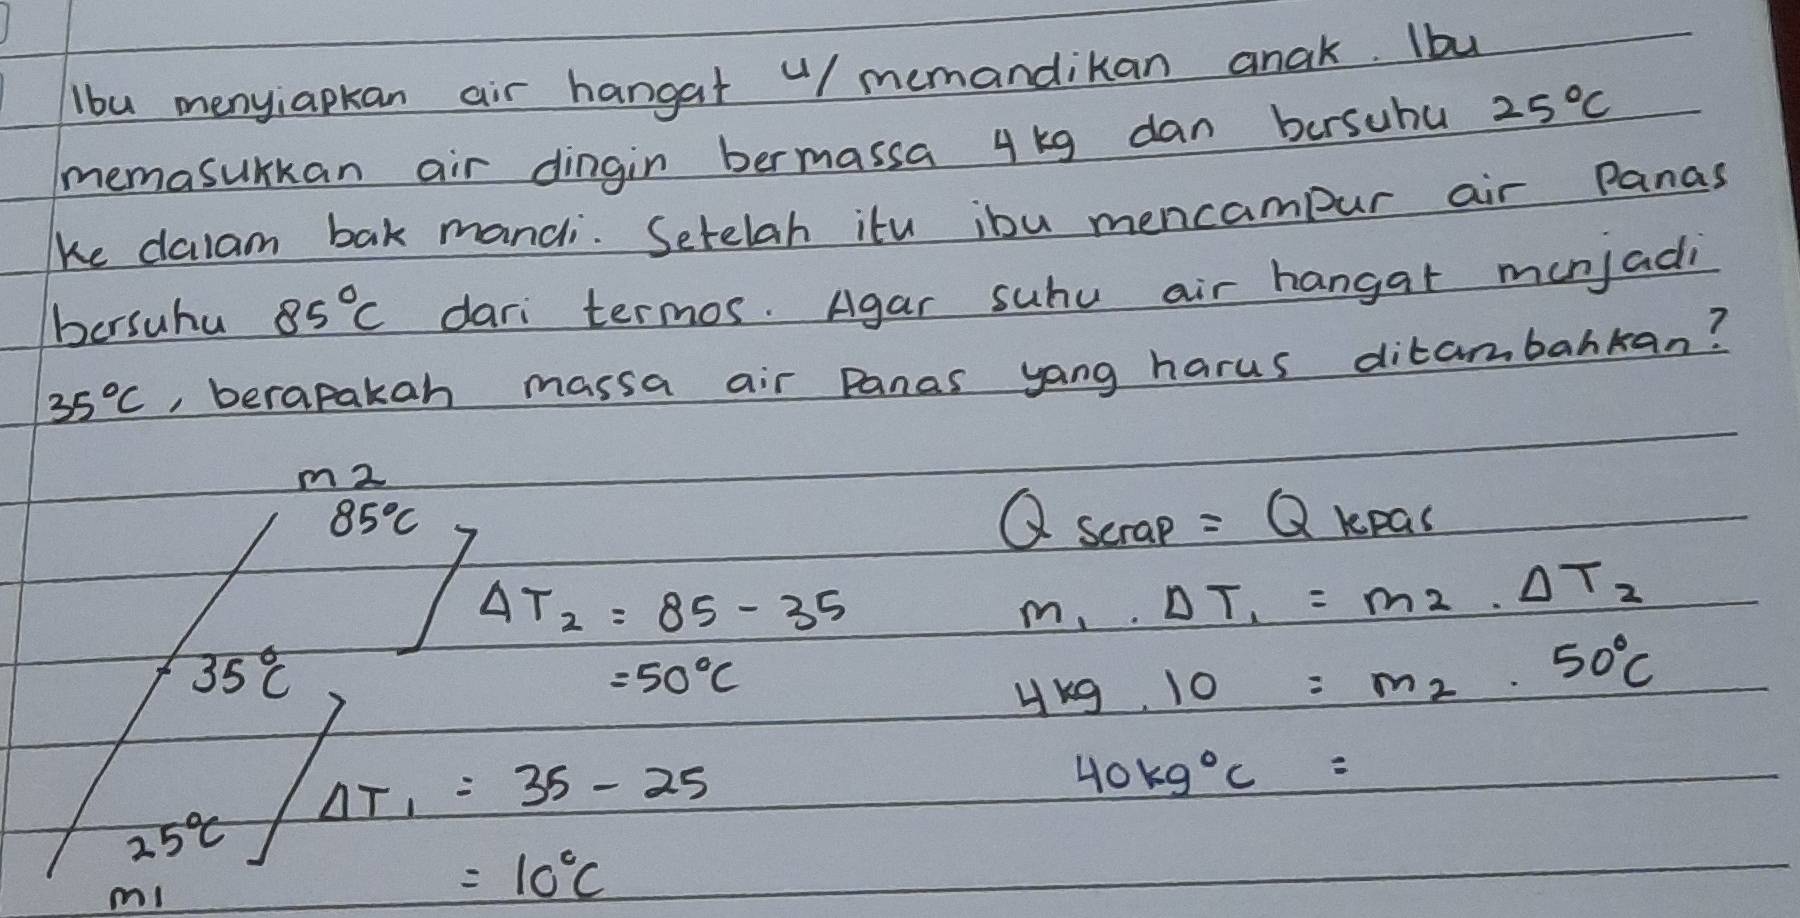 Ibu menyiapkan air hangat u/ memandikan anak. Ibu
memasukkan air dingin bermassa 4 kg dan bersuhu 25°C
ke dalam bak mandi. Setelah itu ibu mencampur air panas
bersuhu 85°C dari termos. Agar suhu air hangat menjadi
35°C, berapakah massa air panas yang harus ditambahkan?
m2
85°C
ΔT₂ = 85 - 35
= 50°C
35°C
ΔT₁ = 35 - 25
= 10°C
25°C
m1
Q serap = Q lepas
m₁ . ΔT₁ = m2 . ΔT₂
4kg . 10 = m₂ . 50°C
40kg°C =